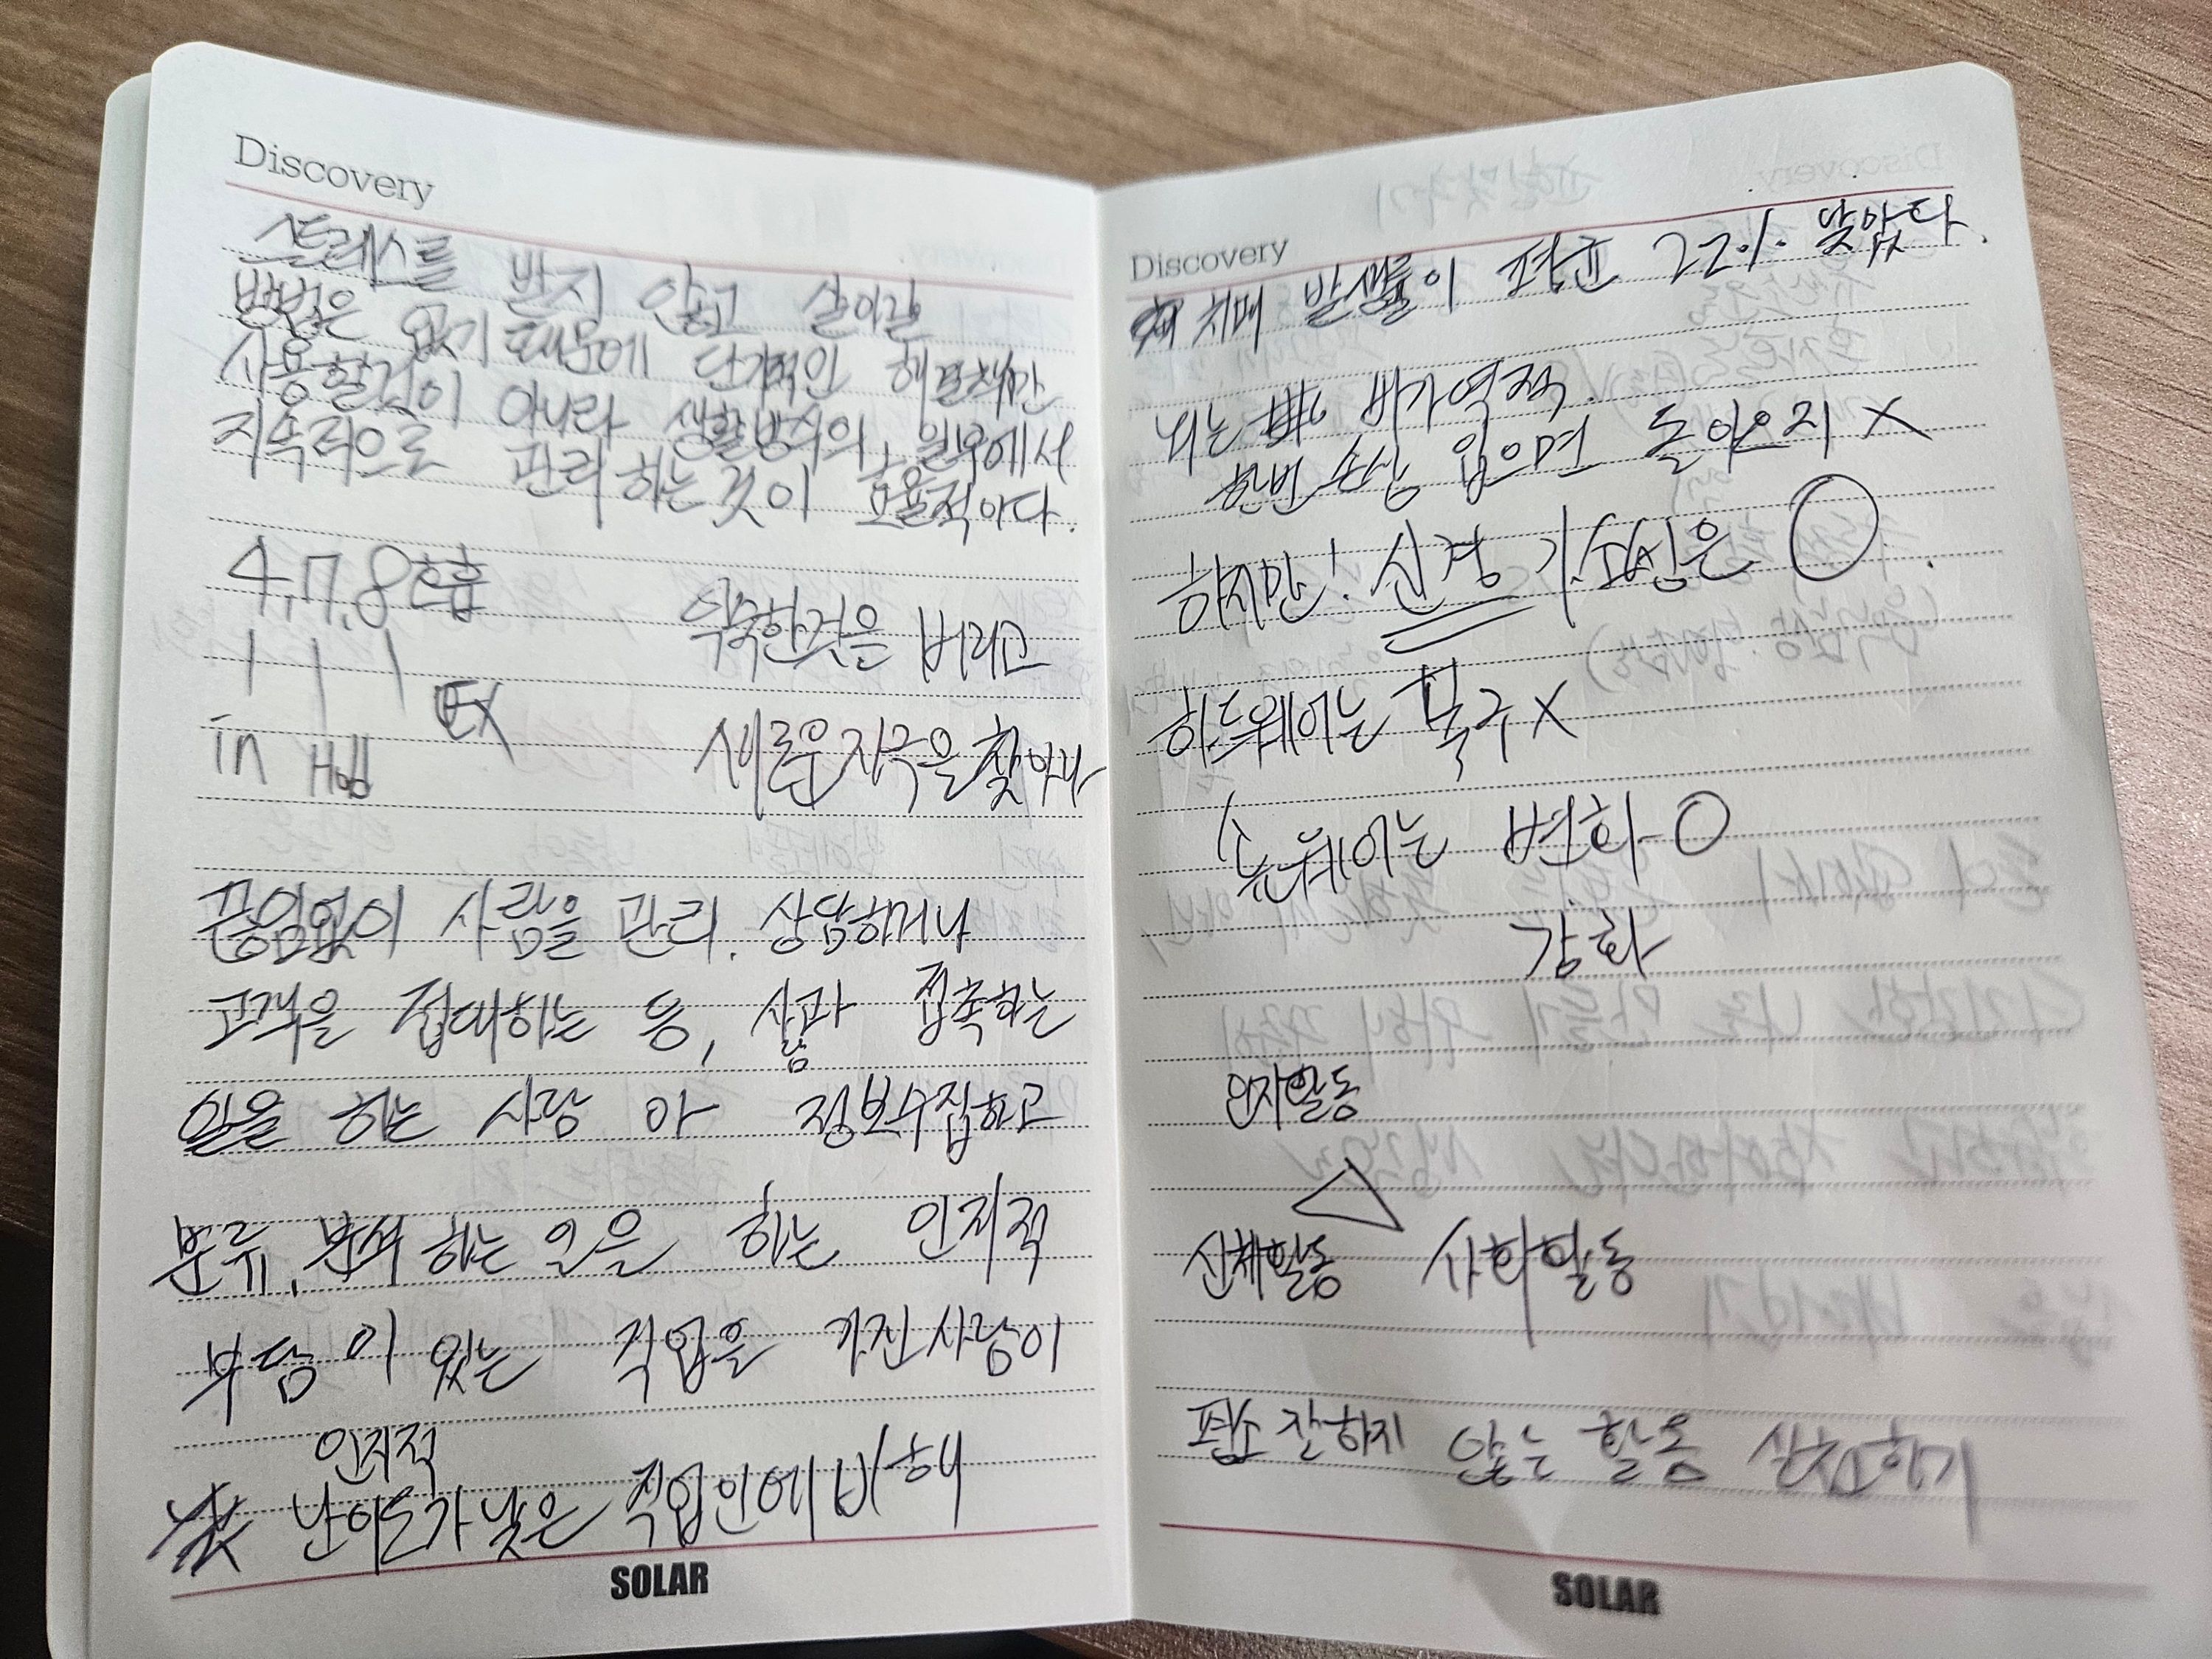 Discovery
스트레스를 받지 않고 살아갈
방법은 없기 때문에 단기적인 해결책만
사용할것이 아니라 생활방식의 일부에서
지속적으로 관리하는것이 효율적이다.
4,7,8호흡
in Hold EX
익숙한것을 버리고
새로운자극을찾아나
끊임없이 사람을 관리. 상담하거나
고객을 접대하는 등, 사람과 접촉하는
일을 하는 사람 아 정보수집하고
분류, 분석 하는 일을 하는 인지적
부담이 있는 직업을 가진사람이
인지적
난이도가 낮은 직업인에 비해
SOLAR
Discovery
치매 발생률이 평균 22% 낮았다.
뇌는 비가역적.
한번 손상 입으면 돌아오지 X
하지만! 신경 가소성은 O
하드웨어는 복구 X
소프트웨어는 변화 O
강화
인지활동
신체활동 사회활동
평소 잘하지 않는 활동 실천하기
SOLAR